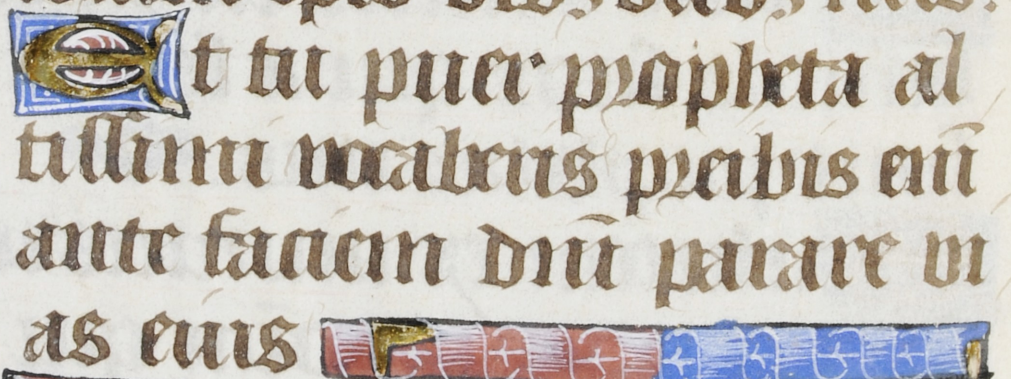 Et tu puer propheta al
tissimi vocaberis preibis enī
ante faciem dnī parare vi
as eius